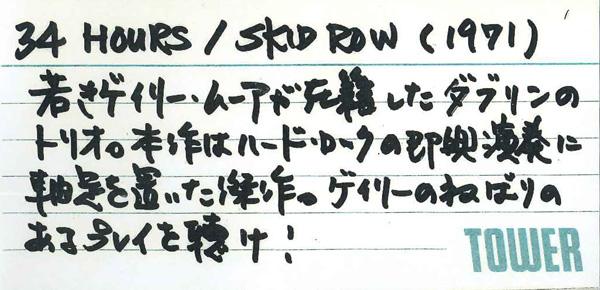 34 HOURS / SKID ROW (1971)
若きゲイリー・ムーアが在籍したダブリンの
トリオ。本作はハード・ロックの即興演奏に
軸足を置いた傑作。ゲイリーのねばりの
あるプレイを聴け!
TOWER